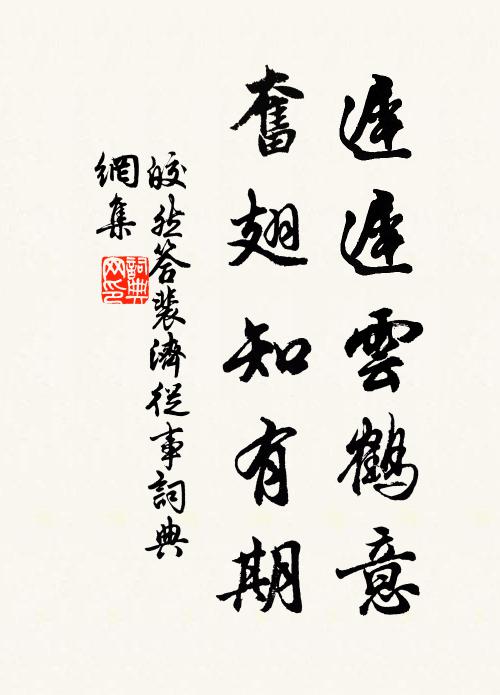 遲遲雲鶴意
奮翅知有期
皎然答裴濟從事詞典
網集
詞典
网印